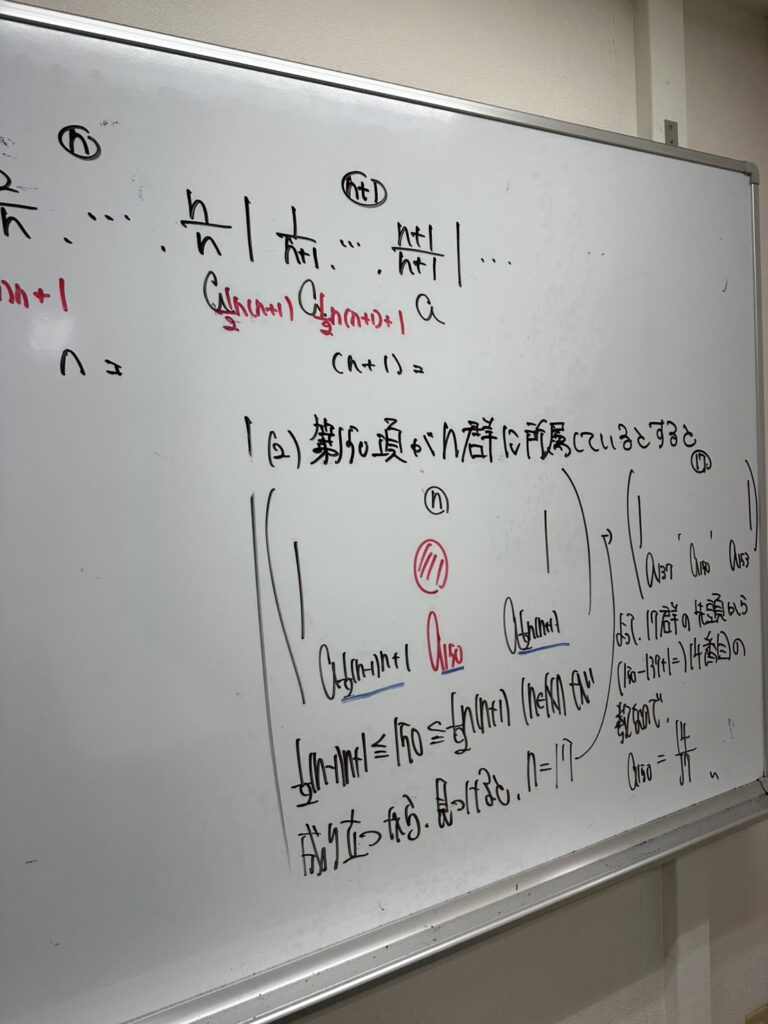 ⓝ
2/n . … . n/n | 1/(n+1) . … . (n+1)/(n+1) | …
)n+1 a_{1/2 n(n+1)} a_{1/2 n(n+1)+1} a
n = (n+1) =
(n+1)
(2) 第150項がn群に所属しているとすると
ⓝ
a_{1/2(n-1)n+1} a_{150} a_{1/2 n(n+1)}
1/2(n-1)n+1 ≦ 150 ≦ 1/2 n(n+1) (n∈N) が
成り立つから、見つけると、n=17
⑰
a_{137} a_{150} a_{153}
よって、17群の先頭から
(150-137+1=)14番目の
数なので、
a_{150} = 14/17